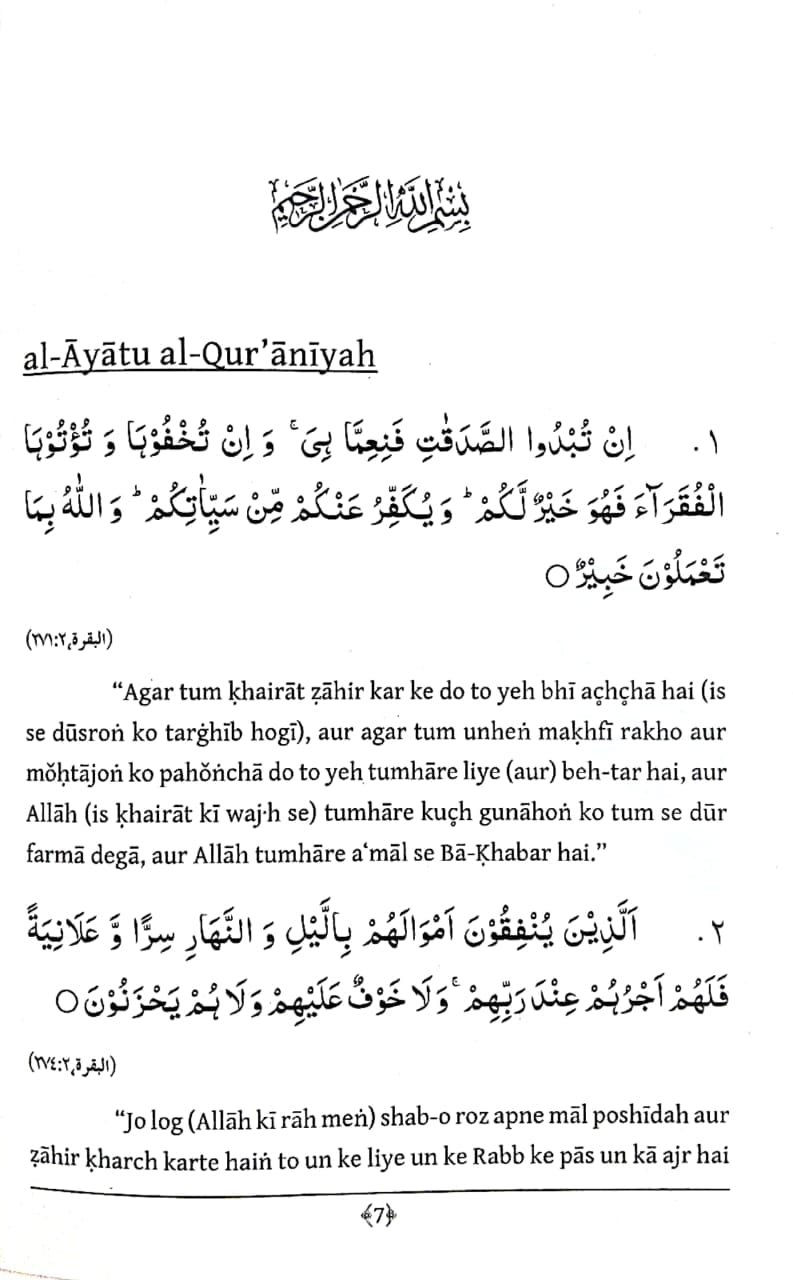 بِسْمِ اللهِ الرَّحْمٰنِ الرَّحِيْمِ
al-Āyātu al-Qur’ānīyah
١. اِنْ تُبْدُوا الصَّدَقٰتِ فَنِعِمَّا هِیَ ۚ وَ اِنْ تُخْفُوْهَا وَ تُؤْتُوْهَا
الْفُقَرَآءَ فَهُوَ خَيْرٌ لَّكُمْ ؕ وَ يُكَفِّرُ عَنْكُمْ مِّنْ سَيِّاٰتِكُمْ ؕ وَ اللهُ بِمَا
تَعْمَلُوْنَ خَبِيْرٌ ○
(البقرة، ٢:٢٧١)
“Agar tum ḳhairāt z̤āhir kar ke do to yeh bhī aç̣hç̣hā hai (is
se dūsroṅ ko tarġhīb hogī), aur agar tum unheṅ maḳhfī rakho aur
mǒḥtājoṅ ko pahǒṅchā do to yeh tumhāre liye (aur) beh-tar hai, aur
Allāh (is ḳhairāt kī waj·h se) tumhāre kuç̣h gunāhoṅ ko tum se dūr
farmā degā, aur Allāh tumhāre a‘māl se Bā-Ḳhabar hai.”
٢. اَلَّذِيْنَ يُنْفِقُوْنَ اَمْوَالَهُمْ بِالَّيْلِ وَ النَّهَارِ سِرًّا وَّ عَلَانِيَةً
فَلَهُمْ اَجْرُهُمْ عِنْدَ رَبِّهِمْ ۚ وَلَا خَوْفٌ عَلَيْهِمْ وَلَا هُمْ يَحْزَنُوْنَ ○
(البقرة، ٢:٢٧٤)
“Jo log (Allāh kī rāh meṅ) shab-o roz apne māl poshīdah aur
z̤āhir ḳharch karte haiṅ to un ke liye un ke Rabb ke pās un kā ajr hai
﴾7﴿